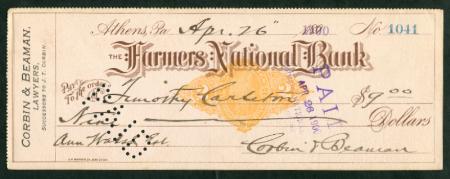 Athens, Pa. Apr. 26" 1900 No 1041
THE Farmers National Bank
Pay To the order of Timothy Carleton $9.00
Nine Dollars
Ann Est. Corbin & Beaman
CORBIN & BEAMAN,
LAWYERS,
SUCCESSORS TO J. T. CORBIN.
PAID
APR 26 1900